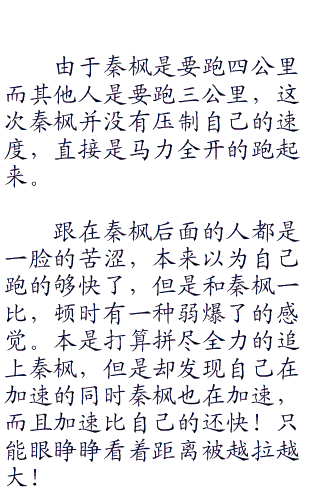 由于秦枫是要跑四公里
而其他人是要跑三公里，这
次秦枫并没有压制自己的速
度，直接是马力全开的跑起
来。
跟在秦枫后面的人都是
一脸的苦涩，本来以为自己
跑的够快了，但是和秦枫一
比，顿时有一种弱爆了的感
觉。本是打算拼尽全力的追
上秦枫，但是却发现自己在
加速的同时秦枫也在加速，
而且加速比自己的还快！只
能眼睁睁看着距离被越拉越
大！